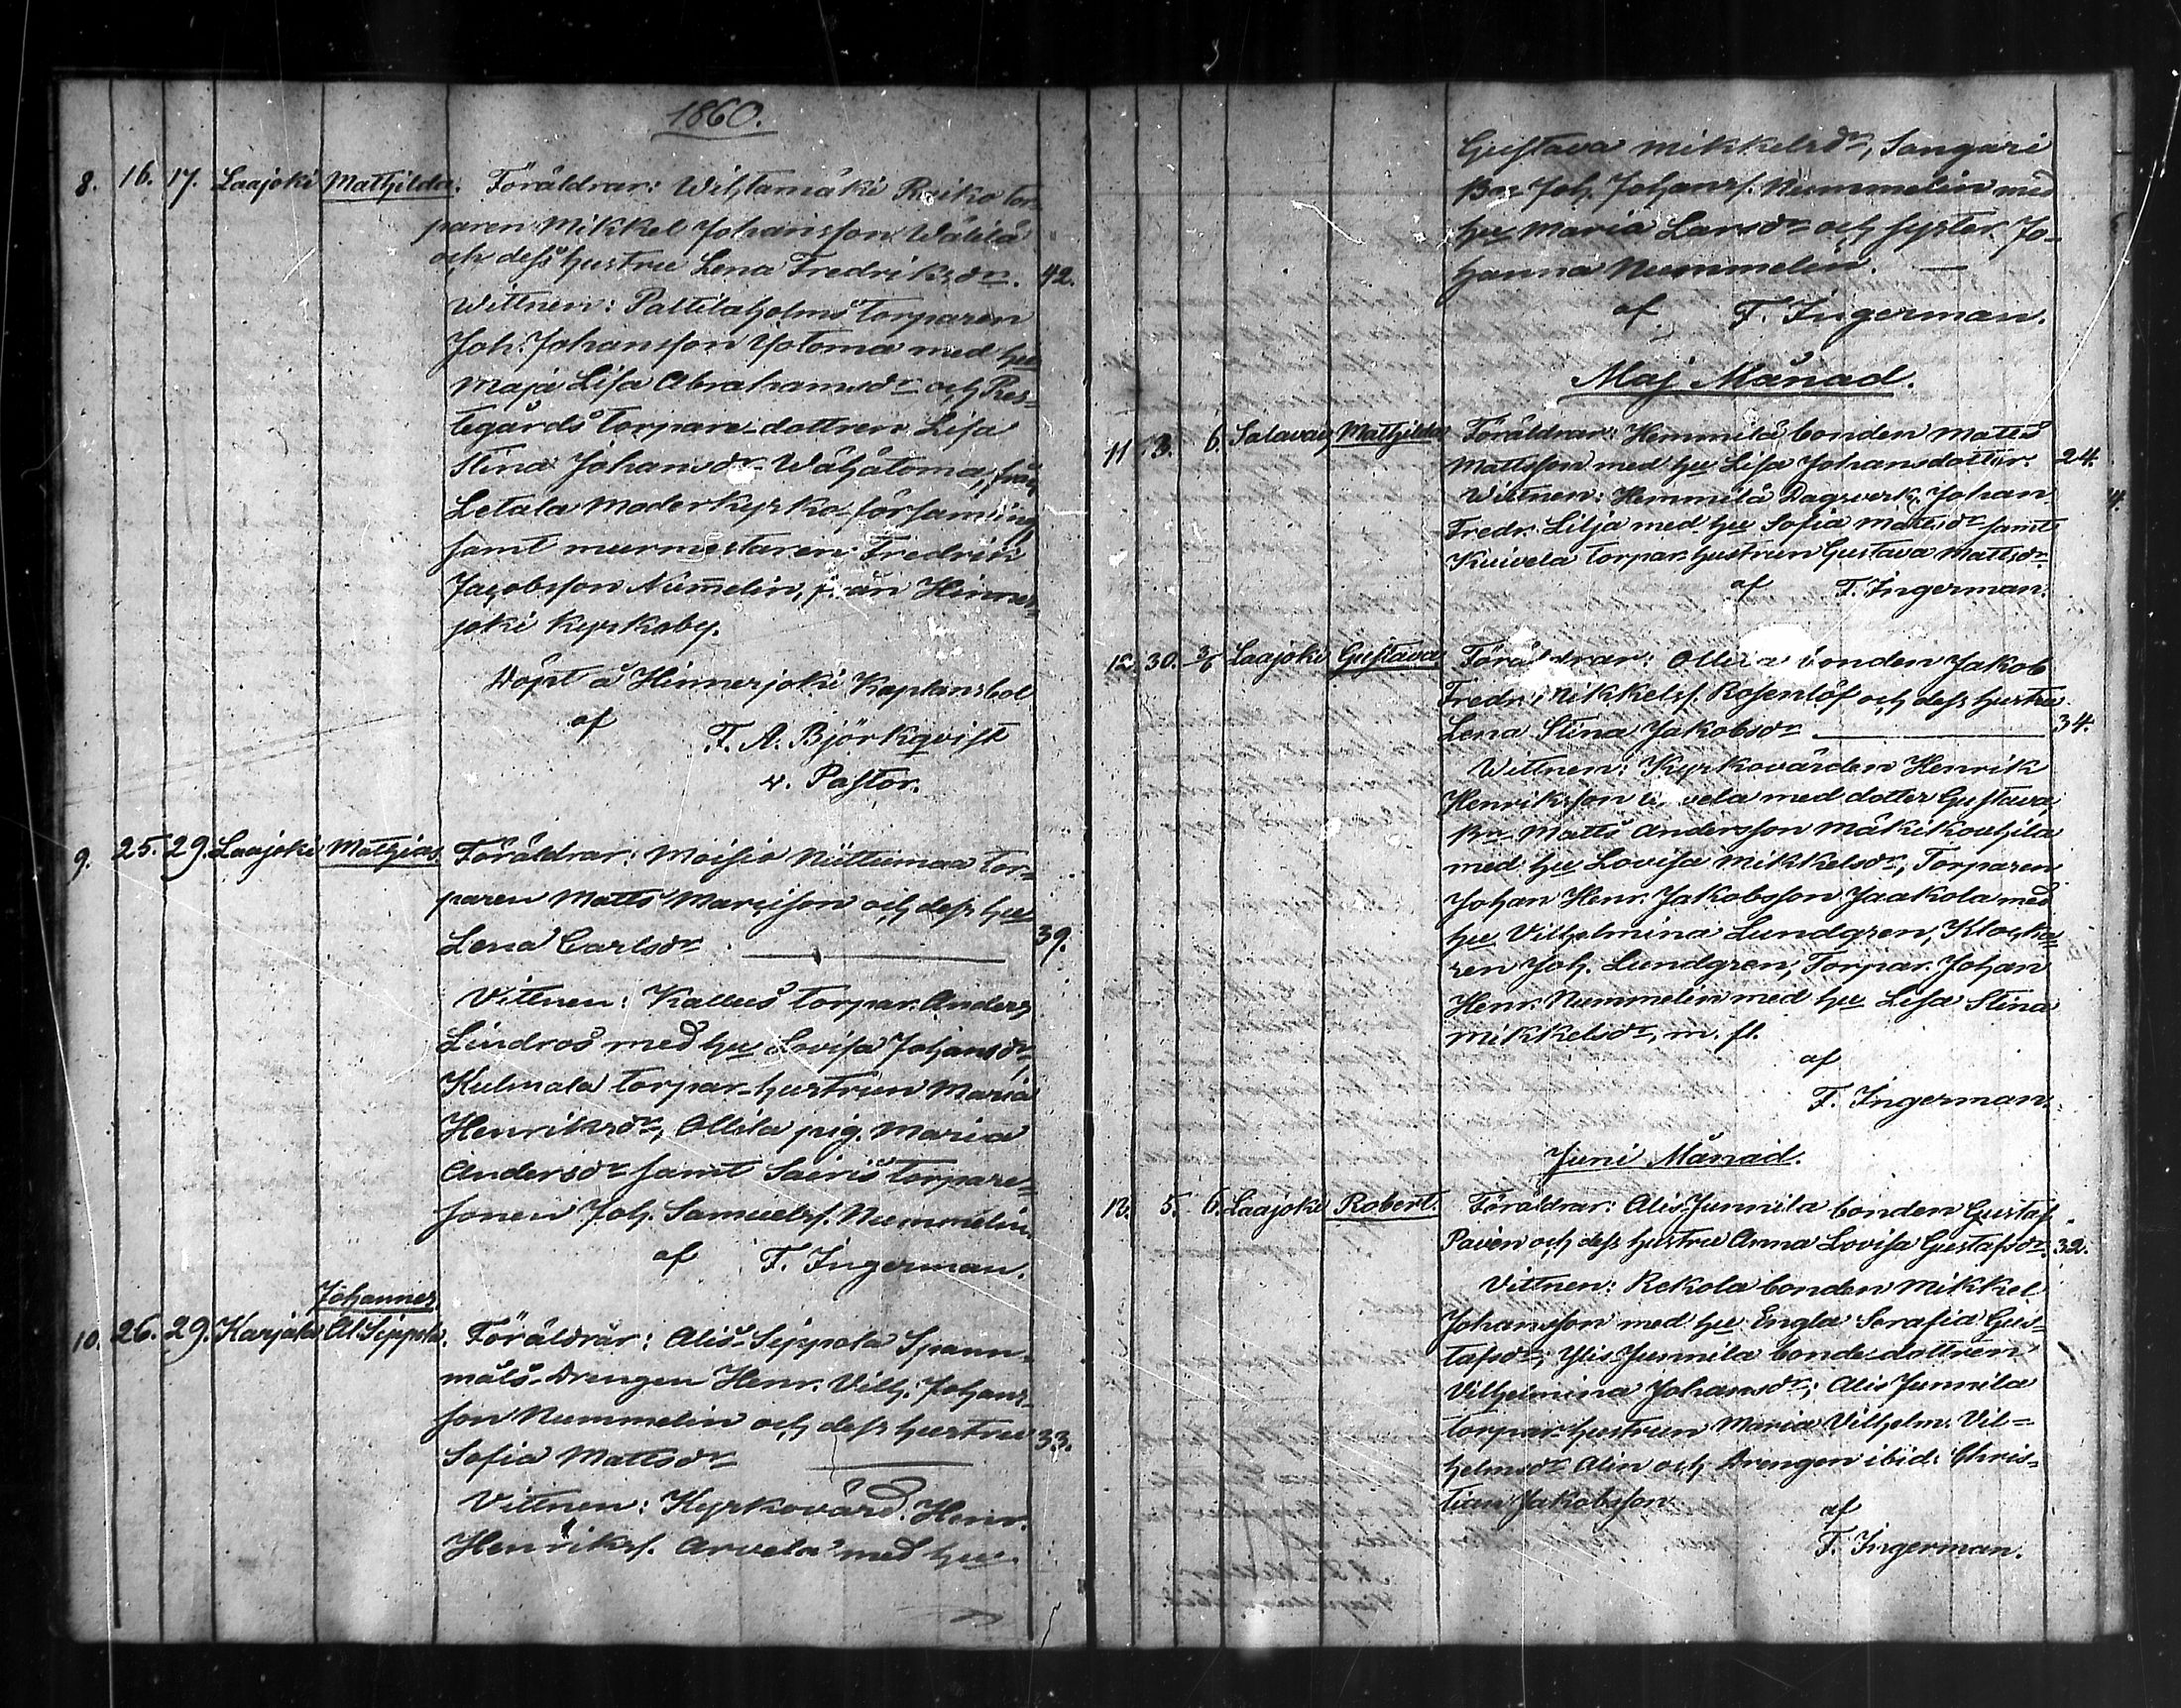 1860.
8. 16. 17. Laajoki Mathilda. Föräldrar: Wihtamäki Raiko tor-
paren Mikkel Johansson Wälilä
och dess hustru Lena Fredriksdr. 42.
Wittnen: Paltilaholms torparen
Joh. Johansson Yotoma med hu
Maja Lisa Abrahamsdr och Pres-
tegårds torpare-dottren Lisa
Stina Johansdr Wähätoma, från
Letala Moderkyrko församling
samt murmestaren Fredrik
Jacobsson Num̄elin, från Hinner-
joki Kyrkoby.
Döpt å Hinnerjoki Kaplansbol
af F. A. Björkqvist
v. Pastor.
9. 25. 29. Laajoki Mathias. Föräldrar: Moisio Niittumaa tor-
paren Matts Marcisson och dess hu
Lena Carlsdr 39.
Vittnen: Kallus torpar. Anders
Lindros med hu Lovisa Johansdr,
Kulmala torpar-hustrun Maria
Henriksdr, Ollila pig. Maria
Andersdr samt Sairis torpare-
sonen Joh. Samuels. Nummelin.
af F. Ingerman.
Johannes.
10. 26. 29. Karjala Al. Seppola. Föräldrar: Alis-Seppola Spann-
måls-drengen Henr. Vilh. Johans-
son Nummelin och dess hustru 33.
Sofia Mattsdr
Vittnen: Kyrkovärd. Henr.
Henriks. Arvela med hu
Gustava Mikkelsdr, Sangari
Bn Joh. Johans. Nummelin med
hu Maria Larsdr och syster Jo-
hanna Nummelin.
af F. Ingerman.
Maj Månad.
11 3. 6. Salavas Mathilda Föräldrar: Hemmilä bonden Matts
Mattsson med hu Lisa Johansdotter. 24.
Wittnen: Hemmilä Dagsverk. Johan
Fredr. Lilja med hu Sofia Mattsdr samt
Kuivela torpar-hustrun Gustava Mattsdr.
af F. Ingerman.
12. 30. 3/6 Laajoki Gustava. Föräldrar: Ollila bonden Jakob
Fredr. Mikkels. Rosenlöf och dess hustru
Lena Stina Jakobsdr 34.
Wittnen: Kyrkovärden Henrik
Henriksson Arvela med dotter Gustava,
Bn Matts Andersson Mäkikouhjila
med hu Lovisa Mikkelsdr, Torparen
Johan Henr. Jakobsson Jaakola med
hu Vilhelmina Lundgren, Klocka-
ren Joh. Lundgren, Torpar. Johan
Henr. Nummelin med hu Lisa Stina
Mikkelsdr, m. fl.
af
F. Ingerman.
Juni Månad.
13. 5. 6. Laajoki Robert. Föräldrar: Alis-Junnila bonden Gustaf
Paven och dess hustru Anna Lovisa Gustafsdr. 32.
Vittnen: Rekola bonden Mikkel
Johansson med hu Engla Serafia Gus-
tafsdr; Ylis-Junnila bonde-dottren
Vilhelmina Johansdr; Alis Junnila
torpar-hustrun Maria Vilhelm. Vil-
helmsdr Alin och Drengen ibid. Chris-
tian Jakobsson.
af
F. Ingerman.